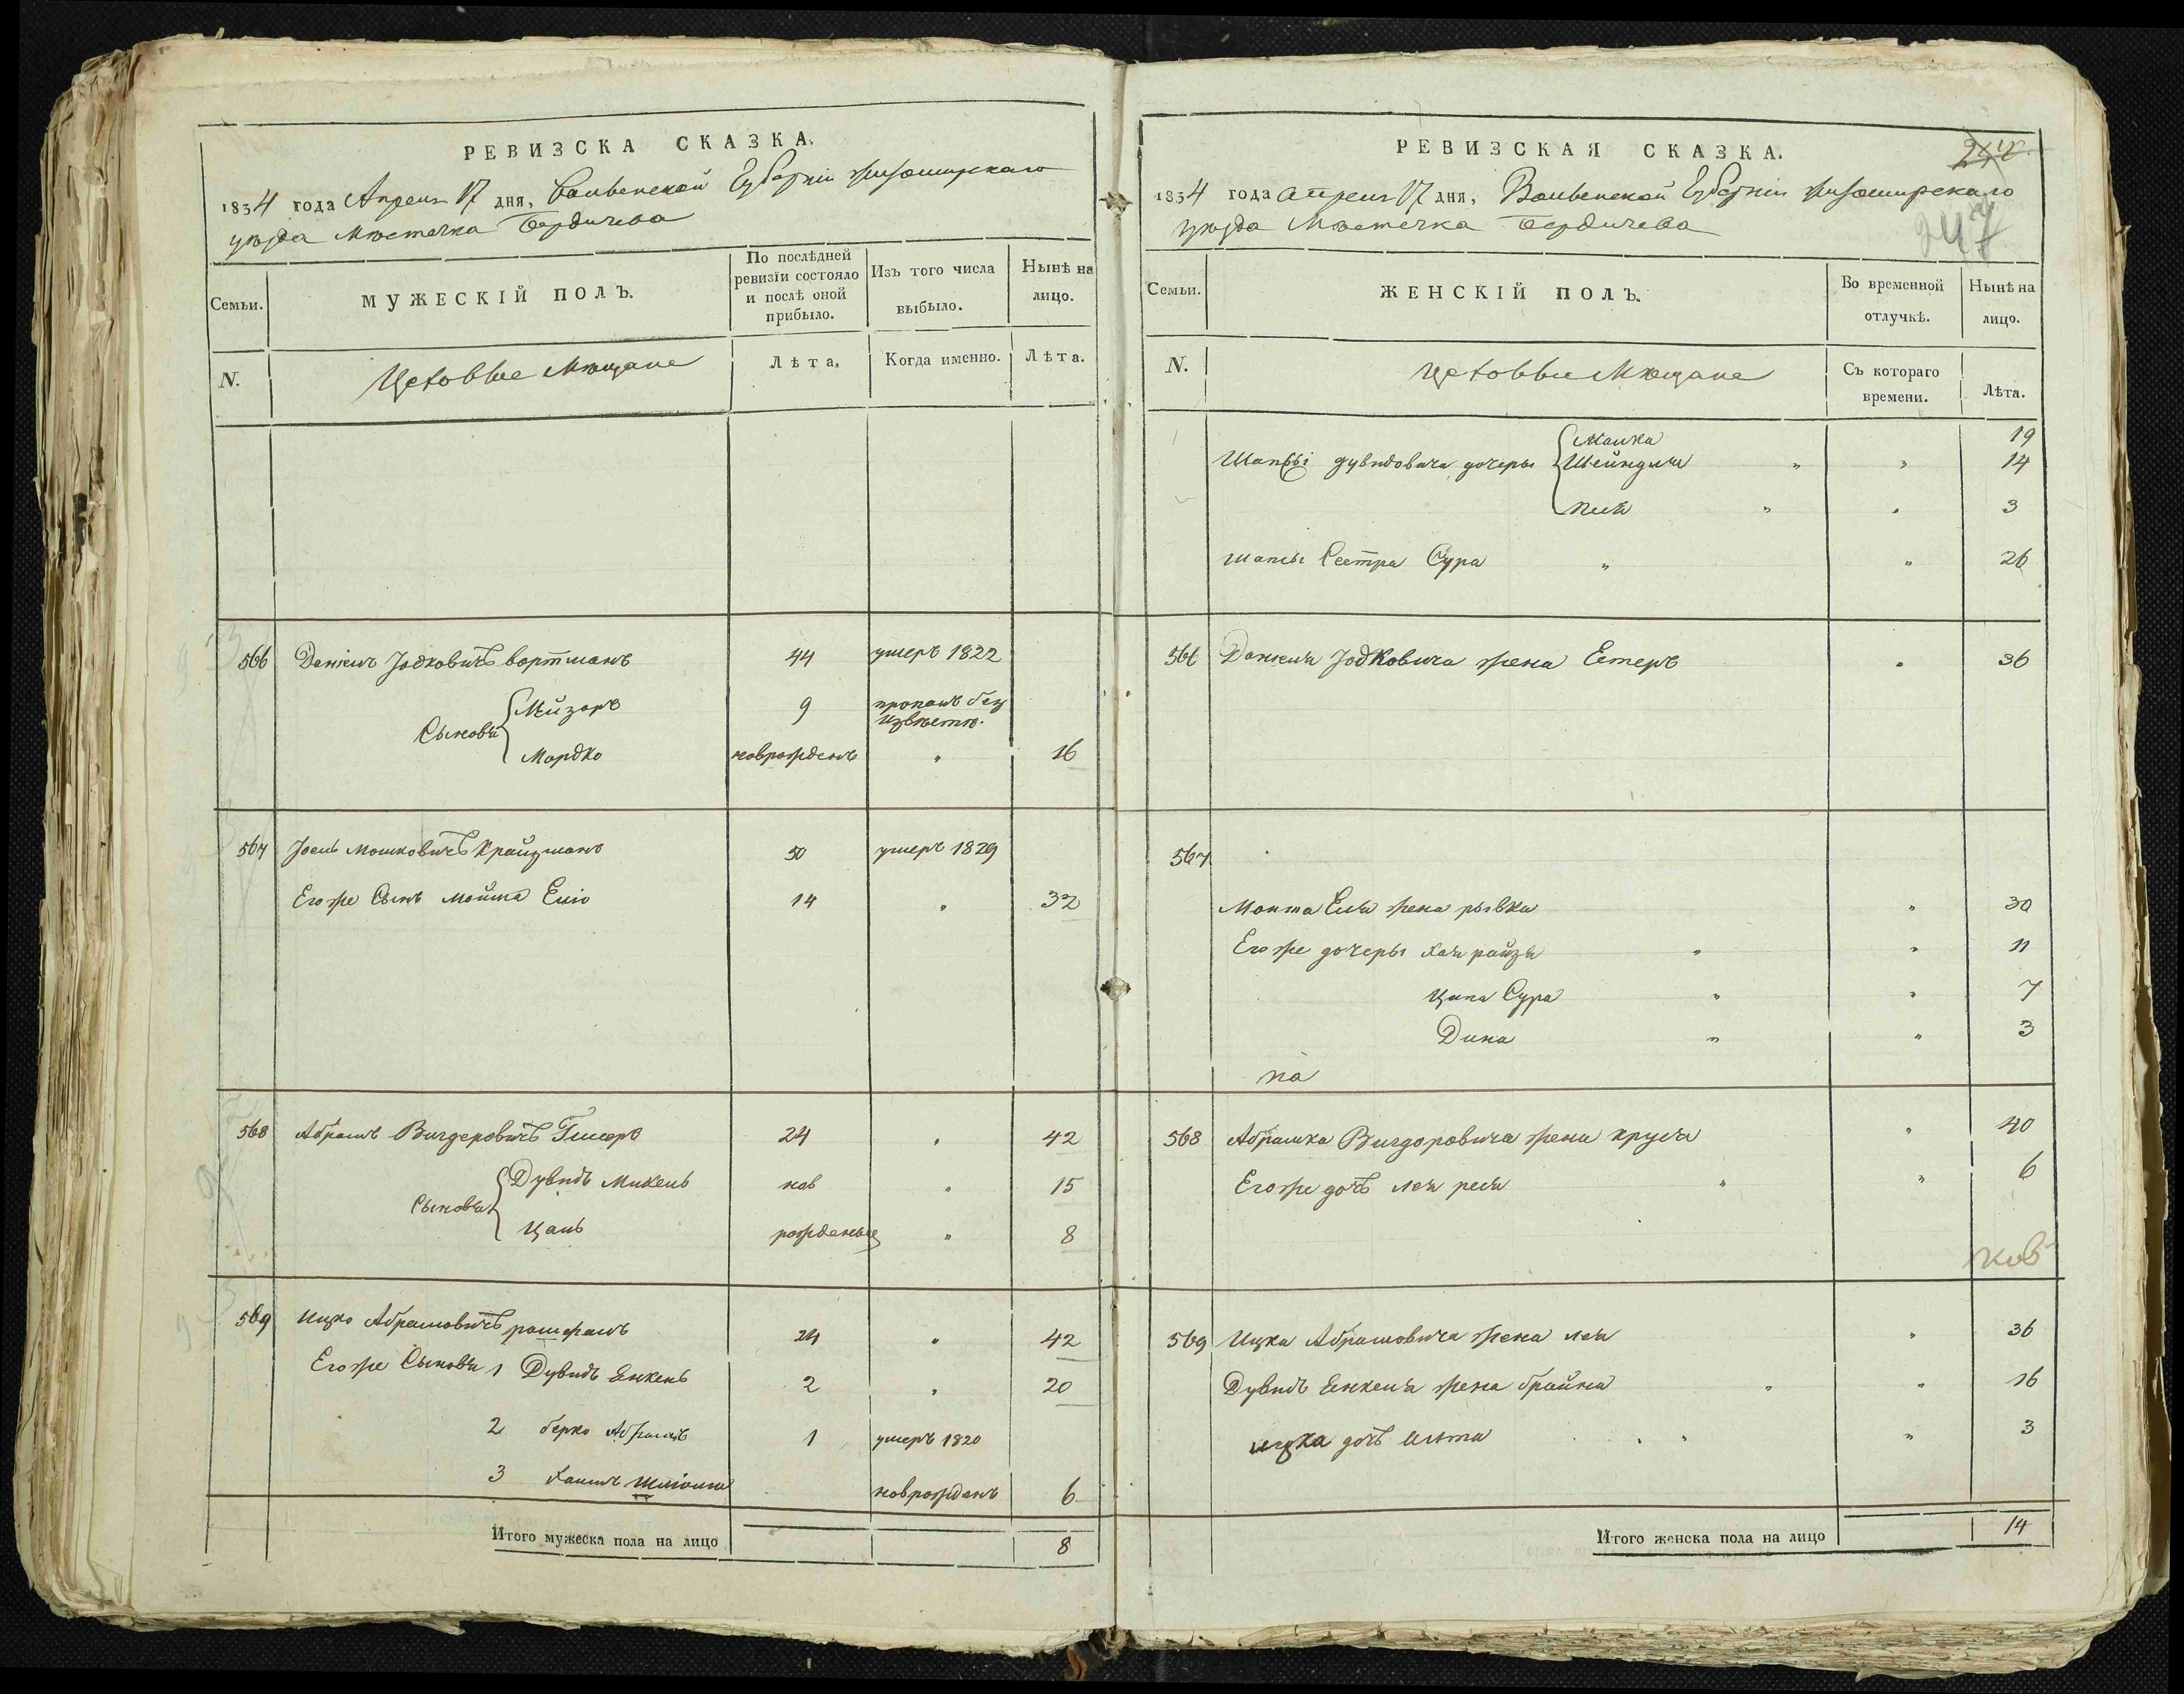 РЕВИЗСКА СКАЗКА.
1834 года Апреля 17 дня, Волынской Губерніи Житомирскаго
уѣзда Мѣстечка Бердичева
Семьи.
МУЖЕСКІЙ ПОЛЪ.
По послѣдней
ревизіи состояло
и послѣ оной
прибыло.
Изъ того числа
выбыло.
Нынѣ на
лицо.
N.
Цеховые Мѣщане
Лѣта.
Когда именно.
Лѣта.
566 Даніель Іодковичъ вортманъ 44 умеръ 1822
Сыновья
Мейзоръ 9 пропалъ безъ
извѣстн.
Мордко новрожденъ " 16
567 Іось Мошковичъ Крайзманъ 50 умеръ 1829
Его же Сынъ Мошка Еліо 14 " 32
568 Абрамъ Вигдеровичъ 24 " 42
Сыновья
Дувидъ Михель нов " 15
Цаль рожденые " 8
569 Ицко Абрамовичъ 24 " 42
Его же Сыновья 1 Дувидъ Енкель 2 " 20
2 берко Абрамъ 1 умеръ 1820
3 Хаимъ новрожденъ 6
Итого мужеска пола на лицо 8
РЕВИЗСКАЯ СКАЗКА.
247
1834 года Апреля 17 дня, Волынской Губерніи Житомирскаго
уѣзда Мѣстечка Бердичева
Семьи.
ЖЕНСКІЙ ПОЛЪ.
Во временной
отлучкѣ.
Нынѣ на
лицо.
N.
Цеховые Мѣщане
Съ котораго
времени.
Лѣта.
Малка 19
Шапсы дувидовича дочеры Шейндля " " 14
" " 3
шапсы Сестра Сура " " 26
566 Даніеля Іодковича жена Естеръ " 36
567
Мошка Еліи жена рывка " 30
Его же дочеры Хая райзя " " 11
Ципа Сура " " 7
Дина " " 3
на
568 Абрамка Вигдоровича жена круся " 40
Его же дочь лея рейзя " " 6
нов
569 Ицка Абрамовича жена лея " 36
Дувидъ Енкеля жена брайна " " 16
ицка дочь " " 3
Итого женска пола на лицо 14